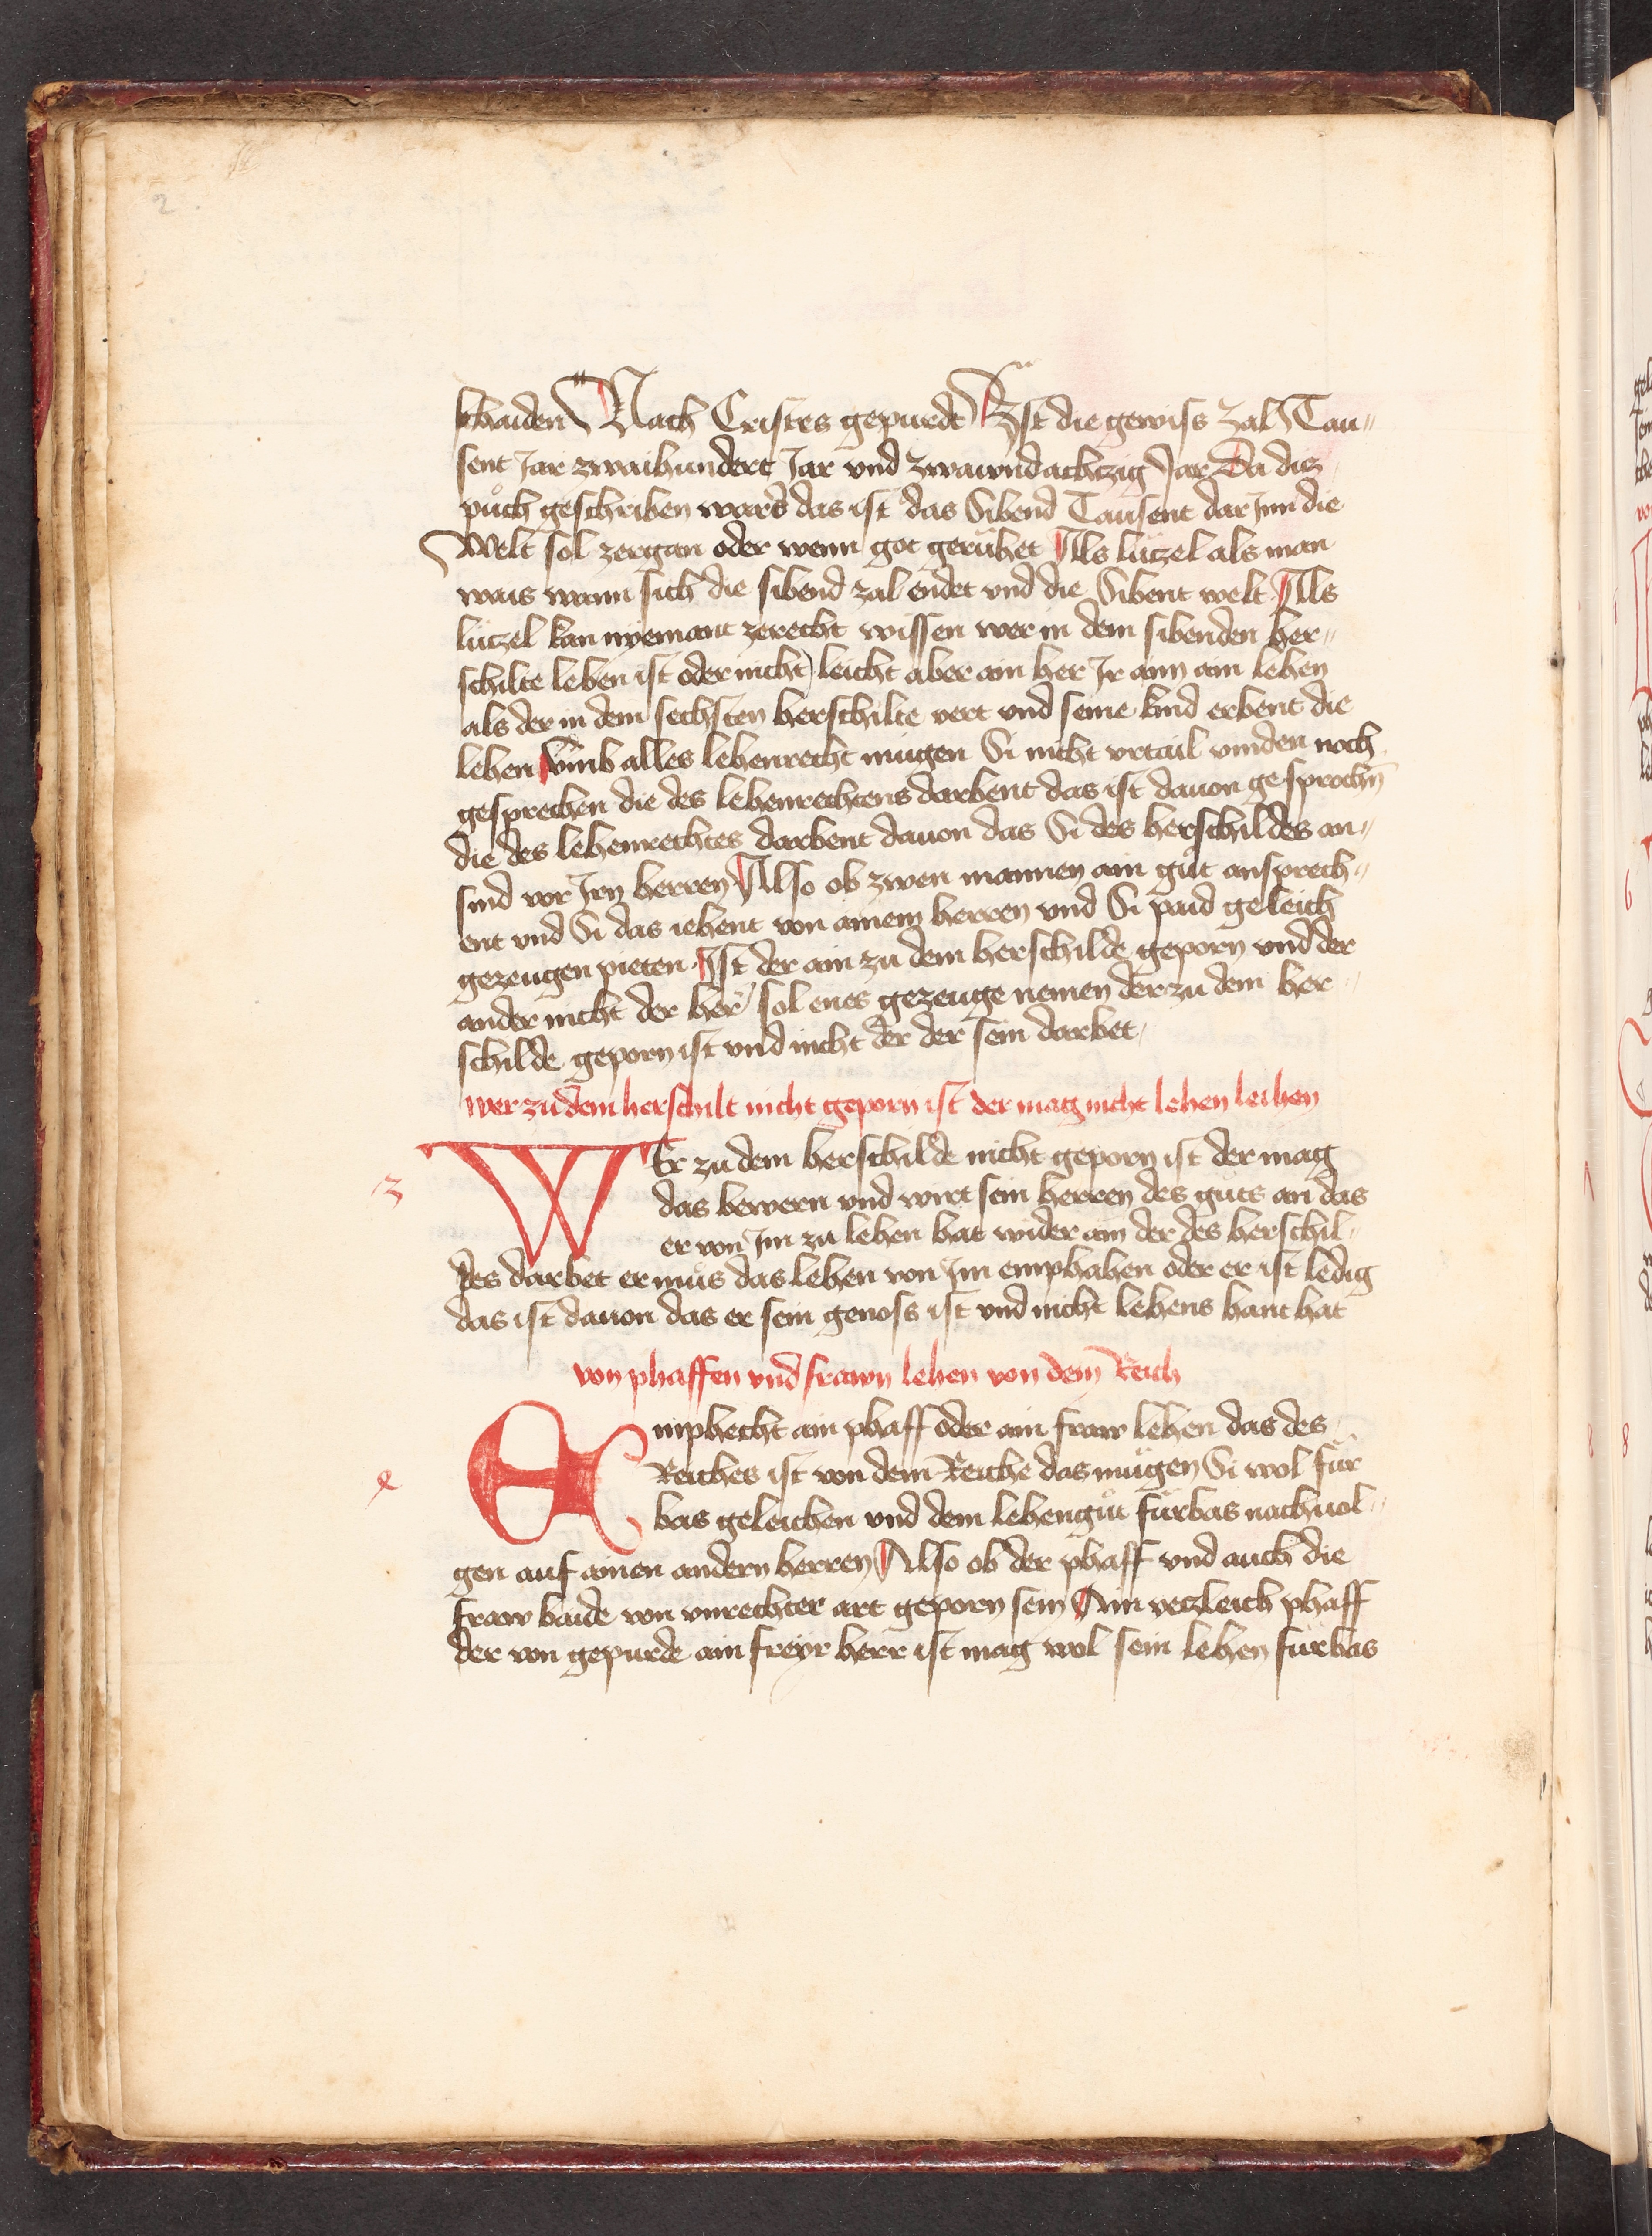 2
schaiden Nach Cristes gepurde Ist die gewiss zal Tau„
sent Jar zwaihundert Jar vnd zwaivndachtzig Jar Da diz
půch geschriben ward das ist das Sibend Tausent dar Jnn die
Welt sol zergan oder wenn got gerůhet Als lützel als man
wais wann sich die sibend zal endet vnd die Sibent welt Als
lützel kan nyemant zerecht wissen wer in dem sibenden her„
schilte leben ist oder nicht leicht aber ain her Jr ainn ain lehen
als der in dem sechsten herschilte vert vnd seine kind erbent die
lehen vmb alles lehenrecht mugen Si nicht vrtail vinden noch
gesprechen die des lehenrechtens darbent das ist dauon gesprochn̄
die des lehenrechtes darbent dauon das Si des herschildes an„
sind vor Jrn herren Also ob zwen mannen ain gůt ansprech„
ent vnd Si das iehent von ainem herren vnd Si paid geleich
gezeugen pieten Ist der ain zu dem herschilde geporn vnd der
ander nicht der her sol enes gezeuge nemen der zu dem her„
schilde geporn ist vnd nicht der der sein darbet
wer zu dem herschilt nicht geporn ist der mag nicht lehen leihen
3
WEr zu dem herschilde nicht geporn ist der mag
das bewern vnd wirt sein herren des guts an das
er von Jm zu lehen hat wider ain der des herschil„
des darbet er můs das lehen von Jm emphahen oder er ist ledig
das ist dauon das er sein genoss ist vnd nicht lehens hant hat
von phaffen vnd frawn lehen von dem Reich
4
Emphecht ain phaff oder ain fraw lehen das des
Reiches ist von dem Reiche das mügen Si wol für
bas geleichen vnd dem lehengůt fürbas nachuol„
gen auf ainen andern herren Also ob der phaff vnd auch die
fraw baide von vnrechter art geporn sein Ain yetzleich phaff
der von gepurde ain freyr herr ist mag wol sein lehen fürbas